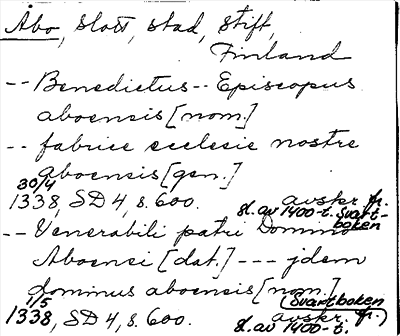 Åbo, slott, stad, stift,
Finland
-- Benedictus -- Episcopus
aboensis [nom.]
-- fabrice ecclesie nostre
aboensis [gen.]
30/4
1338, SD 4, s. 600. avskr. fr.
sl. av 1400-t. Svart-
boken
-- Venerabili patri Domino
Aboensi [dat.] --- jdem
dominus aboensis [nom.]
1/5 (Svartboken
1338, SD 4, s. 600. avskr. fr.)
sl. av 1400-t.